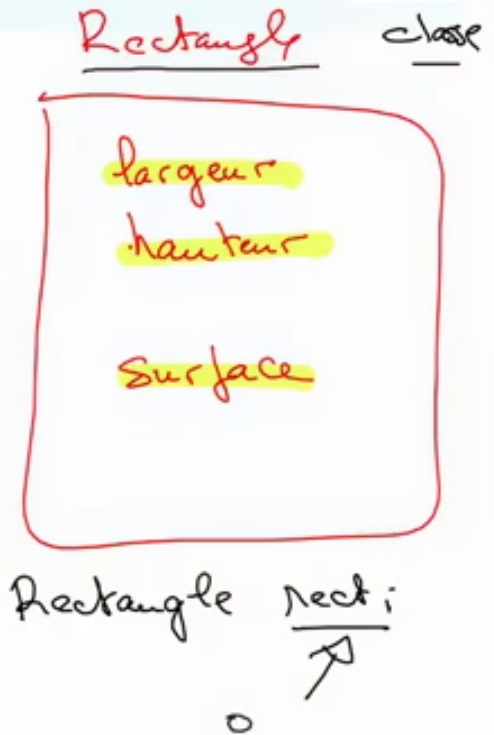 Rectangle classe
largeur
hauteur
surface
Rectangle rect;
o